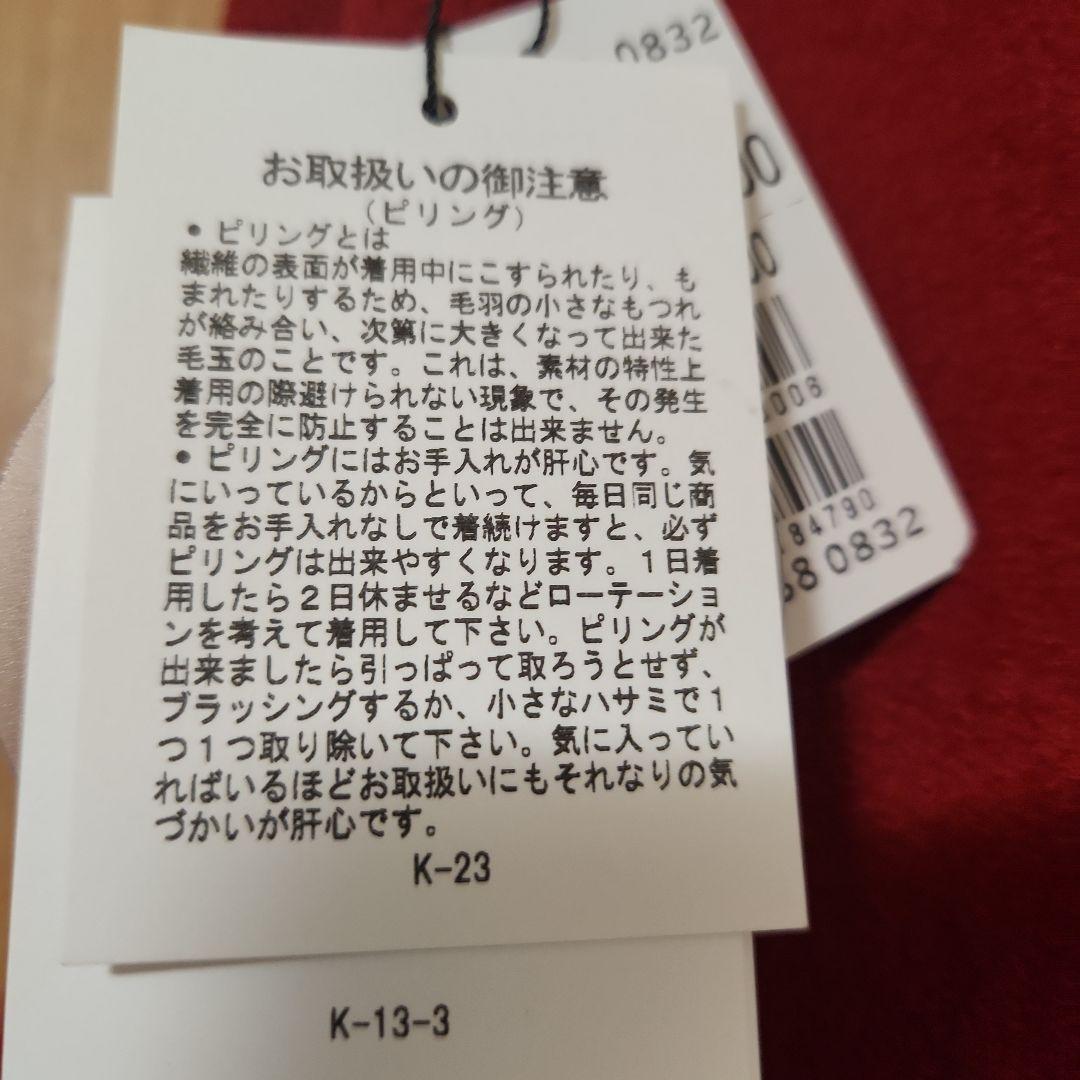 お取扱いの御注意
（ピリング）
●ピリングとは
繊維の表面が着用中にこすられたり、も
まれたりするため、毛羽の小さなもつれ
が絡み合い、次第に大きくなって出来た
毛玉のことです。これは、素材の特性上
着用の際避けられない現象で、その発生
を完全に防止することは出来ません。
●ピリングにはお手入れが肝心です。気
にいっているからといって、毎日同じ商
品をお手入れなしで着続けますと、必ず
ピリングは出来やすくなります。１日着
用したら２日休ませるなどローテーショ
ンを考えて着用して下さい。ピリングが
出来ましたら引っぱって取ろうとせず、
ブラッシングするか、小さなハサミで１
つ１つ取り除いて下さい。気に入ってい
ればいるほどお取扱いにもそれなりの気
づかいが肝心です。
K-23
K-13-3
0832
008
84790
80832